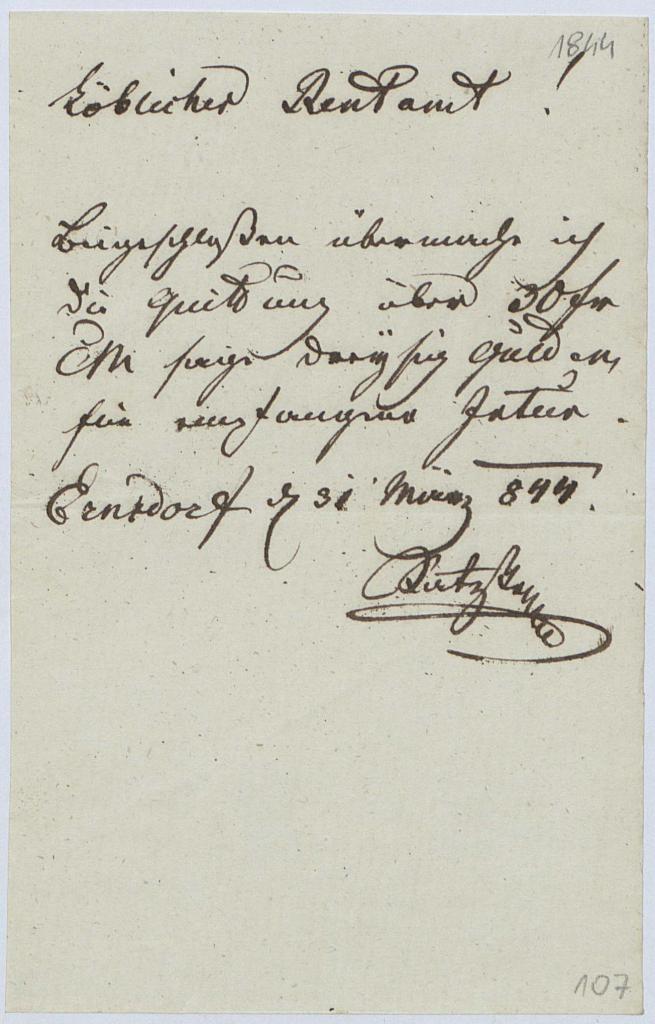 1844
Löbliches Rentamt !
Beigeschloßen übermache ich
die Quittung über 30 fr
CM sage dreÿsig Gulden
für empfangene
Ernsdorf d 31 März 844.
107